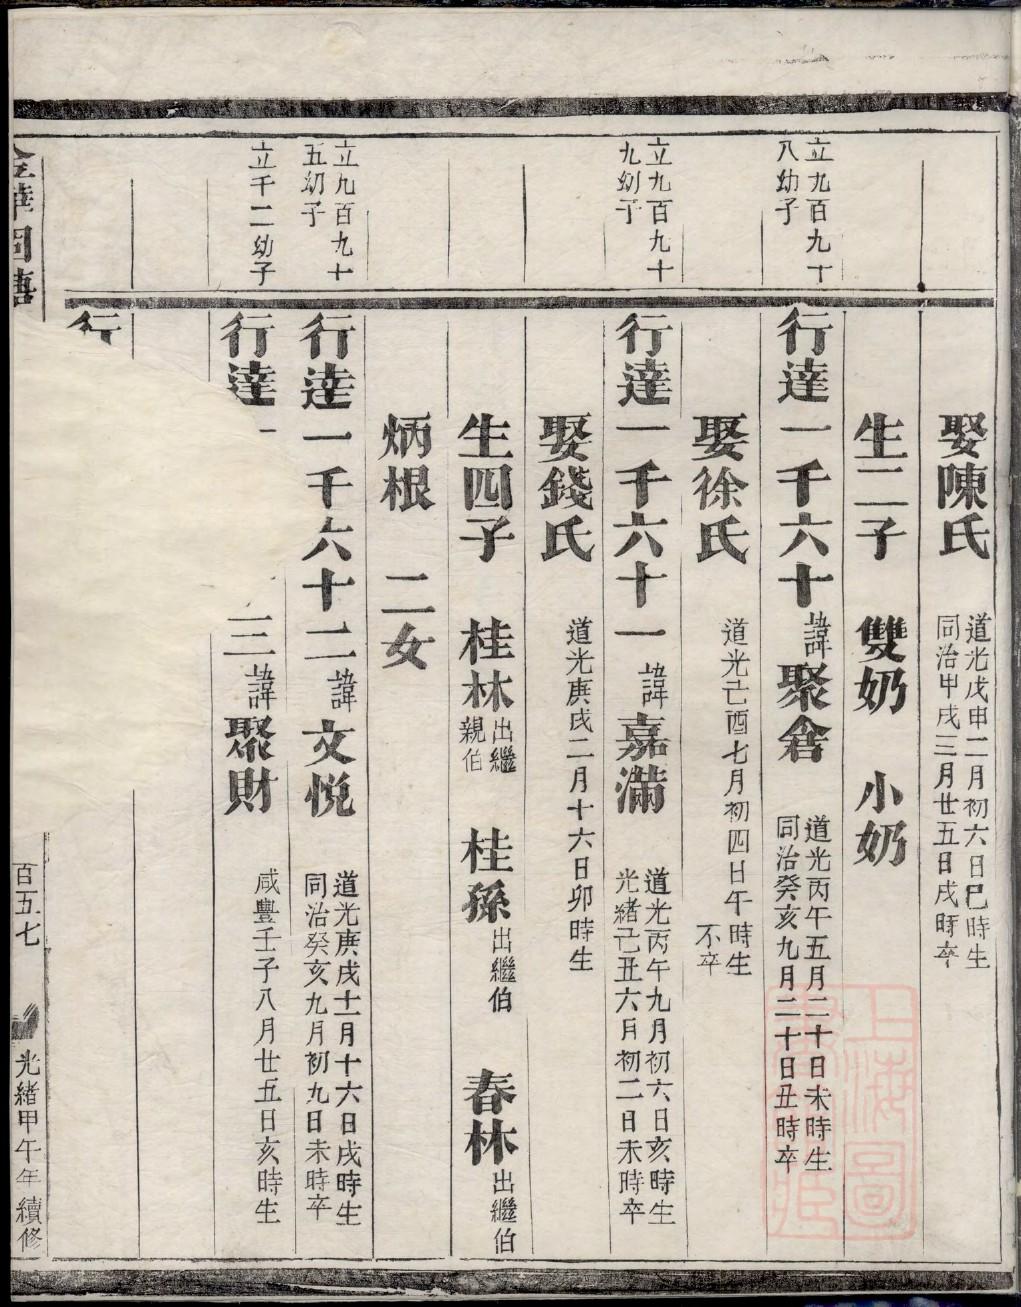 娶陳氏 道光戊申二月初六日巳時生
同治甲戌三月廿五日戌時卒
生二子 雙奶 小奶
立九百九十
八幼子
行達一千六十諱聚倉 道光丙午五月二十日未時生
同治癸亥九月二十日丑時卒
娶徐氏 道光己酉七月初四日午時生
不卒
立九百九十
九幼子
行達一千六十一諱嘉滿 道光丙午九月初六日亥時生
光緒己丑六月初二日未時卒
娶錢氏 道光庚戌二月十六日卯時生
生四子 桂林出繼親伯 桂孫出繼伯 春林出繼伯
炳根 二女
立九百九十
五幼子
行達一千六十二諱文悅 道光庚戌十一月十六日戌時生
同治癸亥九月初九日未時卒
立千二幼子
行達一 三諱聚財 咸豐壬子八月廿五日亥時生
行
百五七
光緒甲午年續修
上海圖書館藏